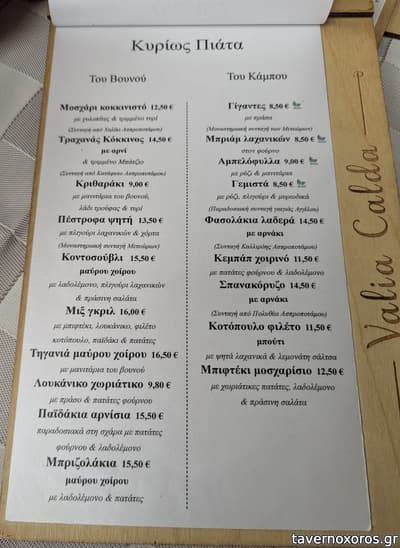 Κυρίως Πιάτα
Του Βουνού
Μοσχάρι κοκκινιστό 12,50 €
με χυλοπίτες & τριμμένο τυρί
(Συνταγή από Χαλίκι Ασπροποτάμου)
Τραχανάς Κόκκινος 14,50 €
με αρνί
& τριμμένο Μπάτζιο
(Συνταγή από Κατάφυτο Ασπροποτάμου)
Κριθαράκι 9,00 €
με μανιτάρια του βουνού,
λάδι τρούφας & τυρί
Πέστροφα ψητή 13,50 €
με πλιγούρι λαχανικών & χόρτα
(Μοναστηριακή συνταγή Μετεώρων)
Κοντοσούβλι 15,50 €
μαύρου χοίρου
με λαδολέμονο, πλιγούρι λαχανικών
& πράσινη σαλάτα
Μιξ γκριλ 16,00 €
με μπιφτέκι, λουκάνικο, φιλέτο
κοτόπουλο, παϊδάκι & πατάτες
Τηγανιά μαύρου χοίρου 16,50 €
με μανιτάρια του βουνού
Λουκάνικο χωριάτικο 9,80 €
με πράσο & πατάτες φούρνου
Παϊδάκια αρνίσια 15,50 €
παραδοσιακά στη σχάρα με πατάτες
φούρνου & λαδολέμονο
Μπριζολάκια 15,50 €
μαύρου χοίρου
με λαδολέμονο & πατάτες
Του Κάμπου
Γίγαντες 8,50 €
με πράσα
(Μοναστηριακή συνταγή των Μετεώρων)
Μπριάμ λαχανικών 8,50 €
στον φούρνο
Αμπελόφυλλα 9,00 €
με ρύζι & μανιτάρια
Γεμιστά 8,50 €
με ρύζι, πλιγούρι & μυρωδικά
(Παραδοσιακή συνταγή γιαγιάς Αγγέλως)
Φασολάκια λαδερά 14,50 €
με αρνάκι
(Συνταγή Καλλιρόης Ασπροποτάμου)
Κεμπάπ χοιρινό 11,50 €
με πατάτες φούρνου & λαδολέμονο
Σπανακόρυζο 14,50 €
με αρνάκι
(Συνταγή από Πολυθέα Ασπροποτάμου)
Κοτόπουλο φιλέτο 11,50 €
μπούτι
με ψητά λαχανικά & λεμονάτη σάλτσα
Μπιφτέκι μοσχαρίσιο 12,50 €
με χωριάτικες πατάτες, λαδολέμονο
& πράσινη σαλάτα
Valia Calda
tavernoxoros.gr